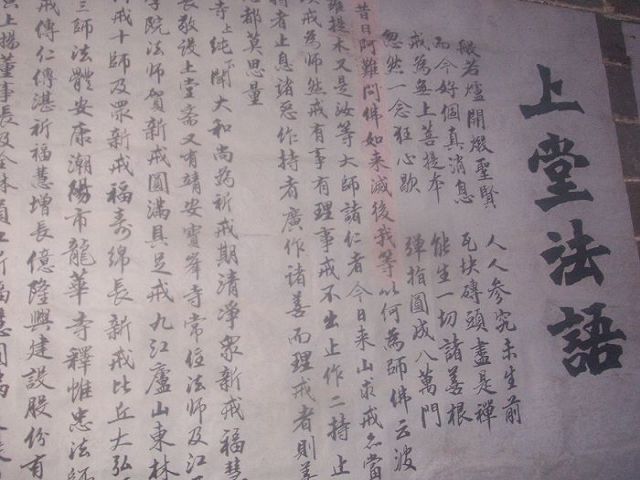 上堂法語
般若爐開煅聖賢
人人參究未生前
而今好個真消息
瓦块磚頭盡是禪
戒為無上菩提本
能生一切諸善根
忽然一念狂心歇
弹指圓成八萬門
昔日阿難問佛如来滅後我等以何為師佛云波
提木又是汝等大師諸仁者今日来山求戒亦當
戒為師然戒有事有理事戒不出止作二持止
持者止息諸惡作持者廣作諸善而理戒者則
都莫思量
寺上純下闻大和尚為祈戒期清净衆新戒福慧
長敬設上堂齋又有靖安寶峯寺常住法師及江
學院法師賀新戒圓滿具足戒九江廬山東林
戒十師及眾新戒福壽綿長新戒比丘大弘
三師法體安康潮陽市龍華寺釋惟忠法師
戒傳仁傳湛祈福慧增長億隆興建設股份有
上揚董事長及全林員工祈福慧圓滿